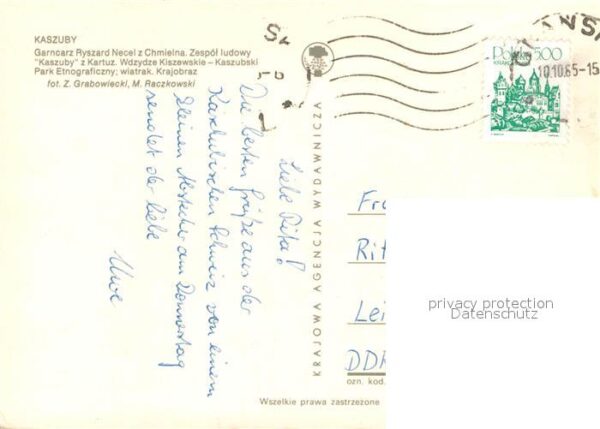 KASZUBY
Garncarz Ryszard Necel z Chmielna. Zespół ludowy
"Kaszuby" z Kartuz. Wdzydze Kiszewskie – Kaszubski
Park Etnograficzny; wiatrak. Krajobraz
fot. Z. Grabowiecki, M. Raczkowski
Liebe Rita!
Die besten Grüße aus der
Kaschubischen Schweiz von einem
kleinen Abstecher am Donnerstag
sendet dir liebe
Uwe
KRAJOWA AGENCJA WYDAWNICZA
Polska 500
10.10.85-15
Fra
Rit
Lei
DDR
ozn. kod.
Wszelkie prawa zastrzeżone
privacy protection
Datenschutz